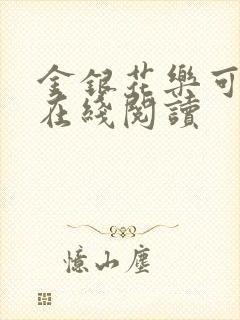 金銀花樂可
在綫閱讀
憶山塵